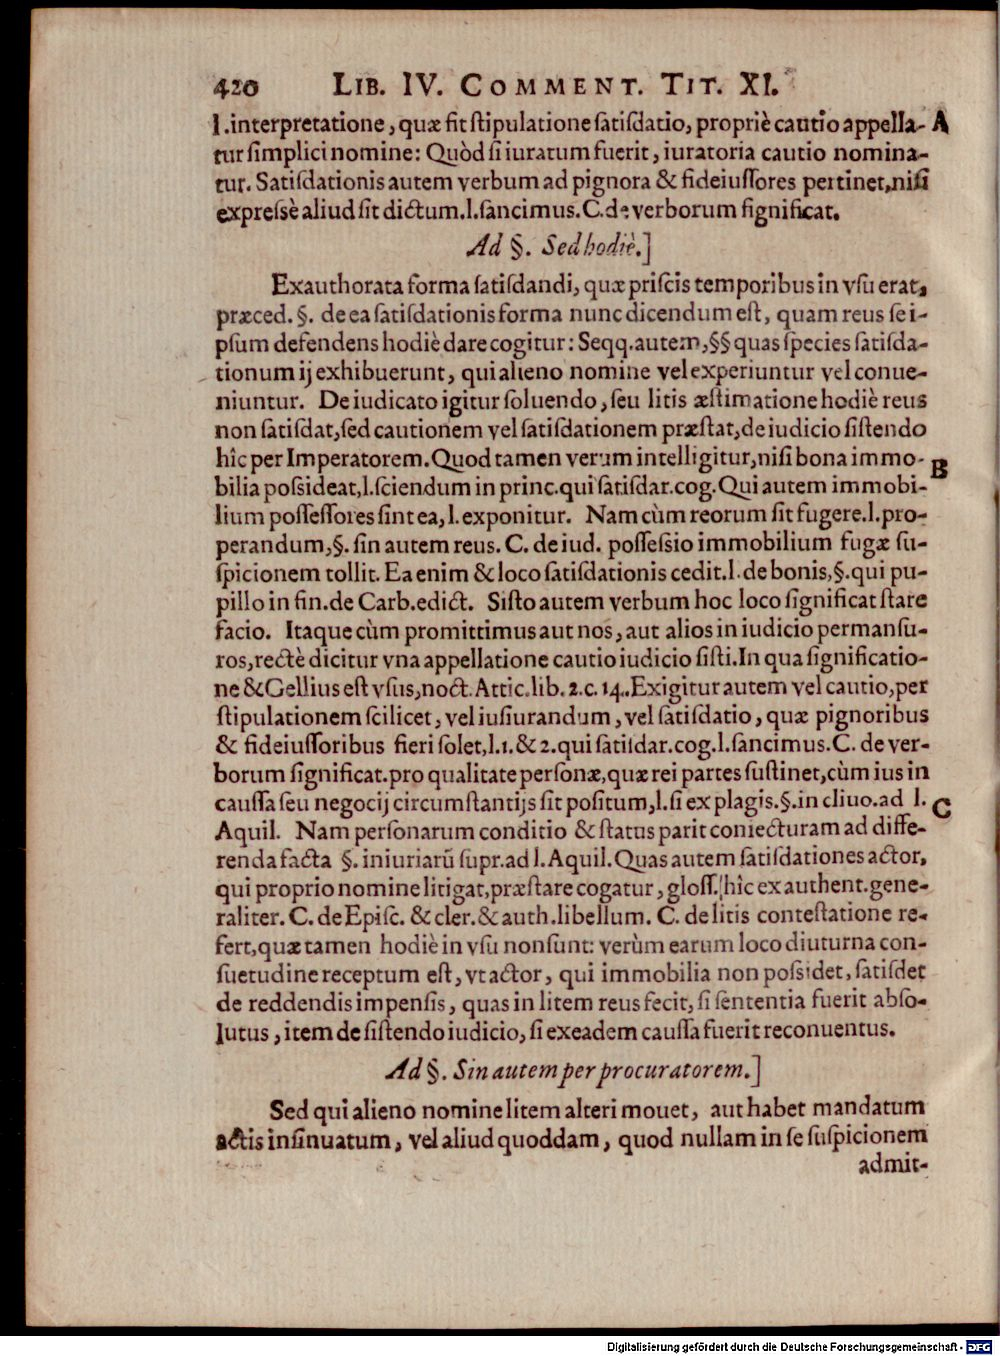 420 LIB. IV. COMMENT. TIT. XI.
l.interpretatione, quæ fit ſtipulatione ſatiſdatio, propriè cautio appella- A
tur ſimplici nomine: Quòd ſi iuratum fuerit, iuratoria cautio nomina-
tur. Satiſdationis autem verbum ad pignora & fideiuſſores pertinet, niſi
expreſsè aliud ſit dictum.l.ſancimus.C.de verborum ſignificat.
Ad §. Sed hodiè.]
Exauthorata forma ſatiſdandi, quæ priſcis temporibus in vſu erat,
præced.§. de ea ſatiſdationis forma nunc dicendum eſt, quam reus ſe i-
pſum defendens hodiè dare cogitur: Seqq.autem, §§ quas ſpecies ſatiſda-
tionum ij exhibuerunt, qui alieno nomine vel experiuntur vel conue-
niuntur. De iudicato igitur ſoluendo, ſeu litis æſtimatione hodiè reus
non ſatiſdat, ſed cautionem vel ſatiſdationem præſtat, de iudicio ſiſtendo
hîc per Imperatorem. Quod tamen verum intelligitur, niſi bona immo- B
bilia poſsideat, l.ſciendum in princ.qui ſatiſdar.cog. Qui autem immobi-
lium poſſeſſores ſint ea, l.exponitur. Nam cùm reorum ſit fugere.l.pro-
perandum, §. ſin autem reus. C. de iud. poſſeſsio immobilium fugæ ſu-
ſpicionem tollit. Ea enim & loco ſatiſdationis cedit.l.de bonis, §.qui pu-
pillo in fin.de Carb.edict. Siſto autem verbum hoc loco ſignificat ſtare
facio. Itaque cùm promittimus aut nos, aut alios in iudicio permanſu-
ros, rectè dicitur vna appellatione cautio iudicio ſiſti. In qua ſignificatio-
ne & Gellius eſt vſus, noct. Attic.lib.2.c.14. Exigitur autem vel cautio, per
ſtipulationem ſcilicet, vel iuſiurandum, vel ſatiſdatio, quæ pignoribus
& fideiuſſoribus fieri ſolet, l.1.& 2.qui ſatiſdar.cog.l.ſancimus.C. de ver-
borum ſignificat.pro qualitate perſonæ, quæ rei partes ſuſtinet, cùm ius in
cauſſa ſeu negocij circumſtantijs ſit poſitum, l.ſi ex plagis.§.in cliuo.ad l. C
Aquil. Nam perſonarum conditio & ſtatus parit coniecturam ad diffe-
renda facta §. iniuriarũ ſupr.ad l.Aquil. Quas autem ſatiſdationes actor,
qui proprio nomine litigat, præſtare cogatur, gloſſ. hîc ex authent.gene-
raliter. C. de Epiſc. & cler.& auth.libellum. C. de litis conteſtatione re-
fert, quæ tamen hodiè in vſu non ſunt: verùm earum loco diuturna con-
ſuetudine receptum eſt, vt actor, qui immobilia non poſsidet, ſatiſdet
de reddendis impenſis, quas in litem reus fecit, ſi ſententia fuerit abſo-
lutus, item de ſiſtendo iudicio, ſi ex eadem cauſſa fuerit reconuentus.
Ad §. Sin autem per procuratorem.]
Sed qui alieno nomine litem alteri mouet, aut habet mandatum
actis inſinuatum, vel aliud quoddam, quod nullam in ſe ſuſpicionem
admit-
Digitalisierung gefördert durch die Deutsche Forschungsgemeinschaft - DFG